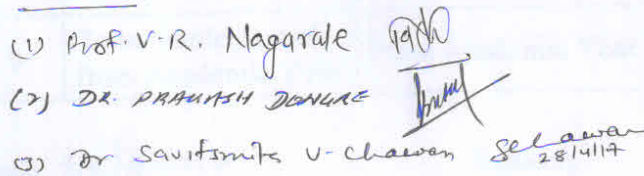 (1) Prof. V. R. Nagarale
(2) DR. PRAKASH DONGRE
(3) Dr Savitsmita V- Chavan SChavan
28/4/17